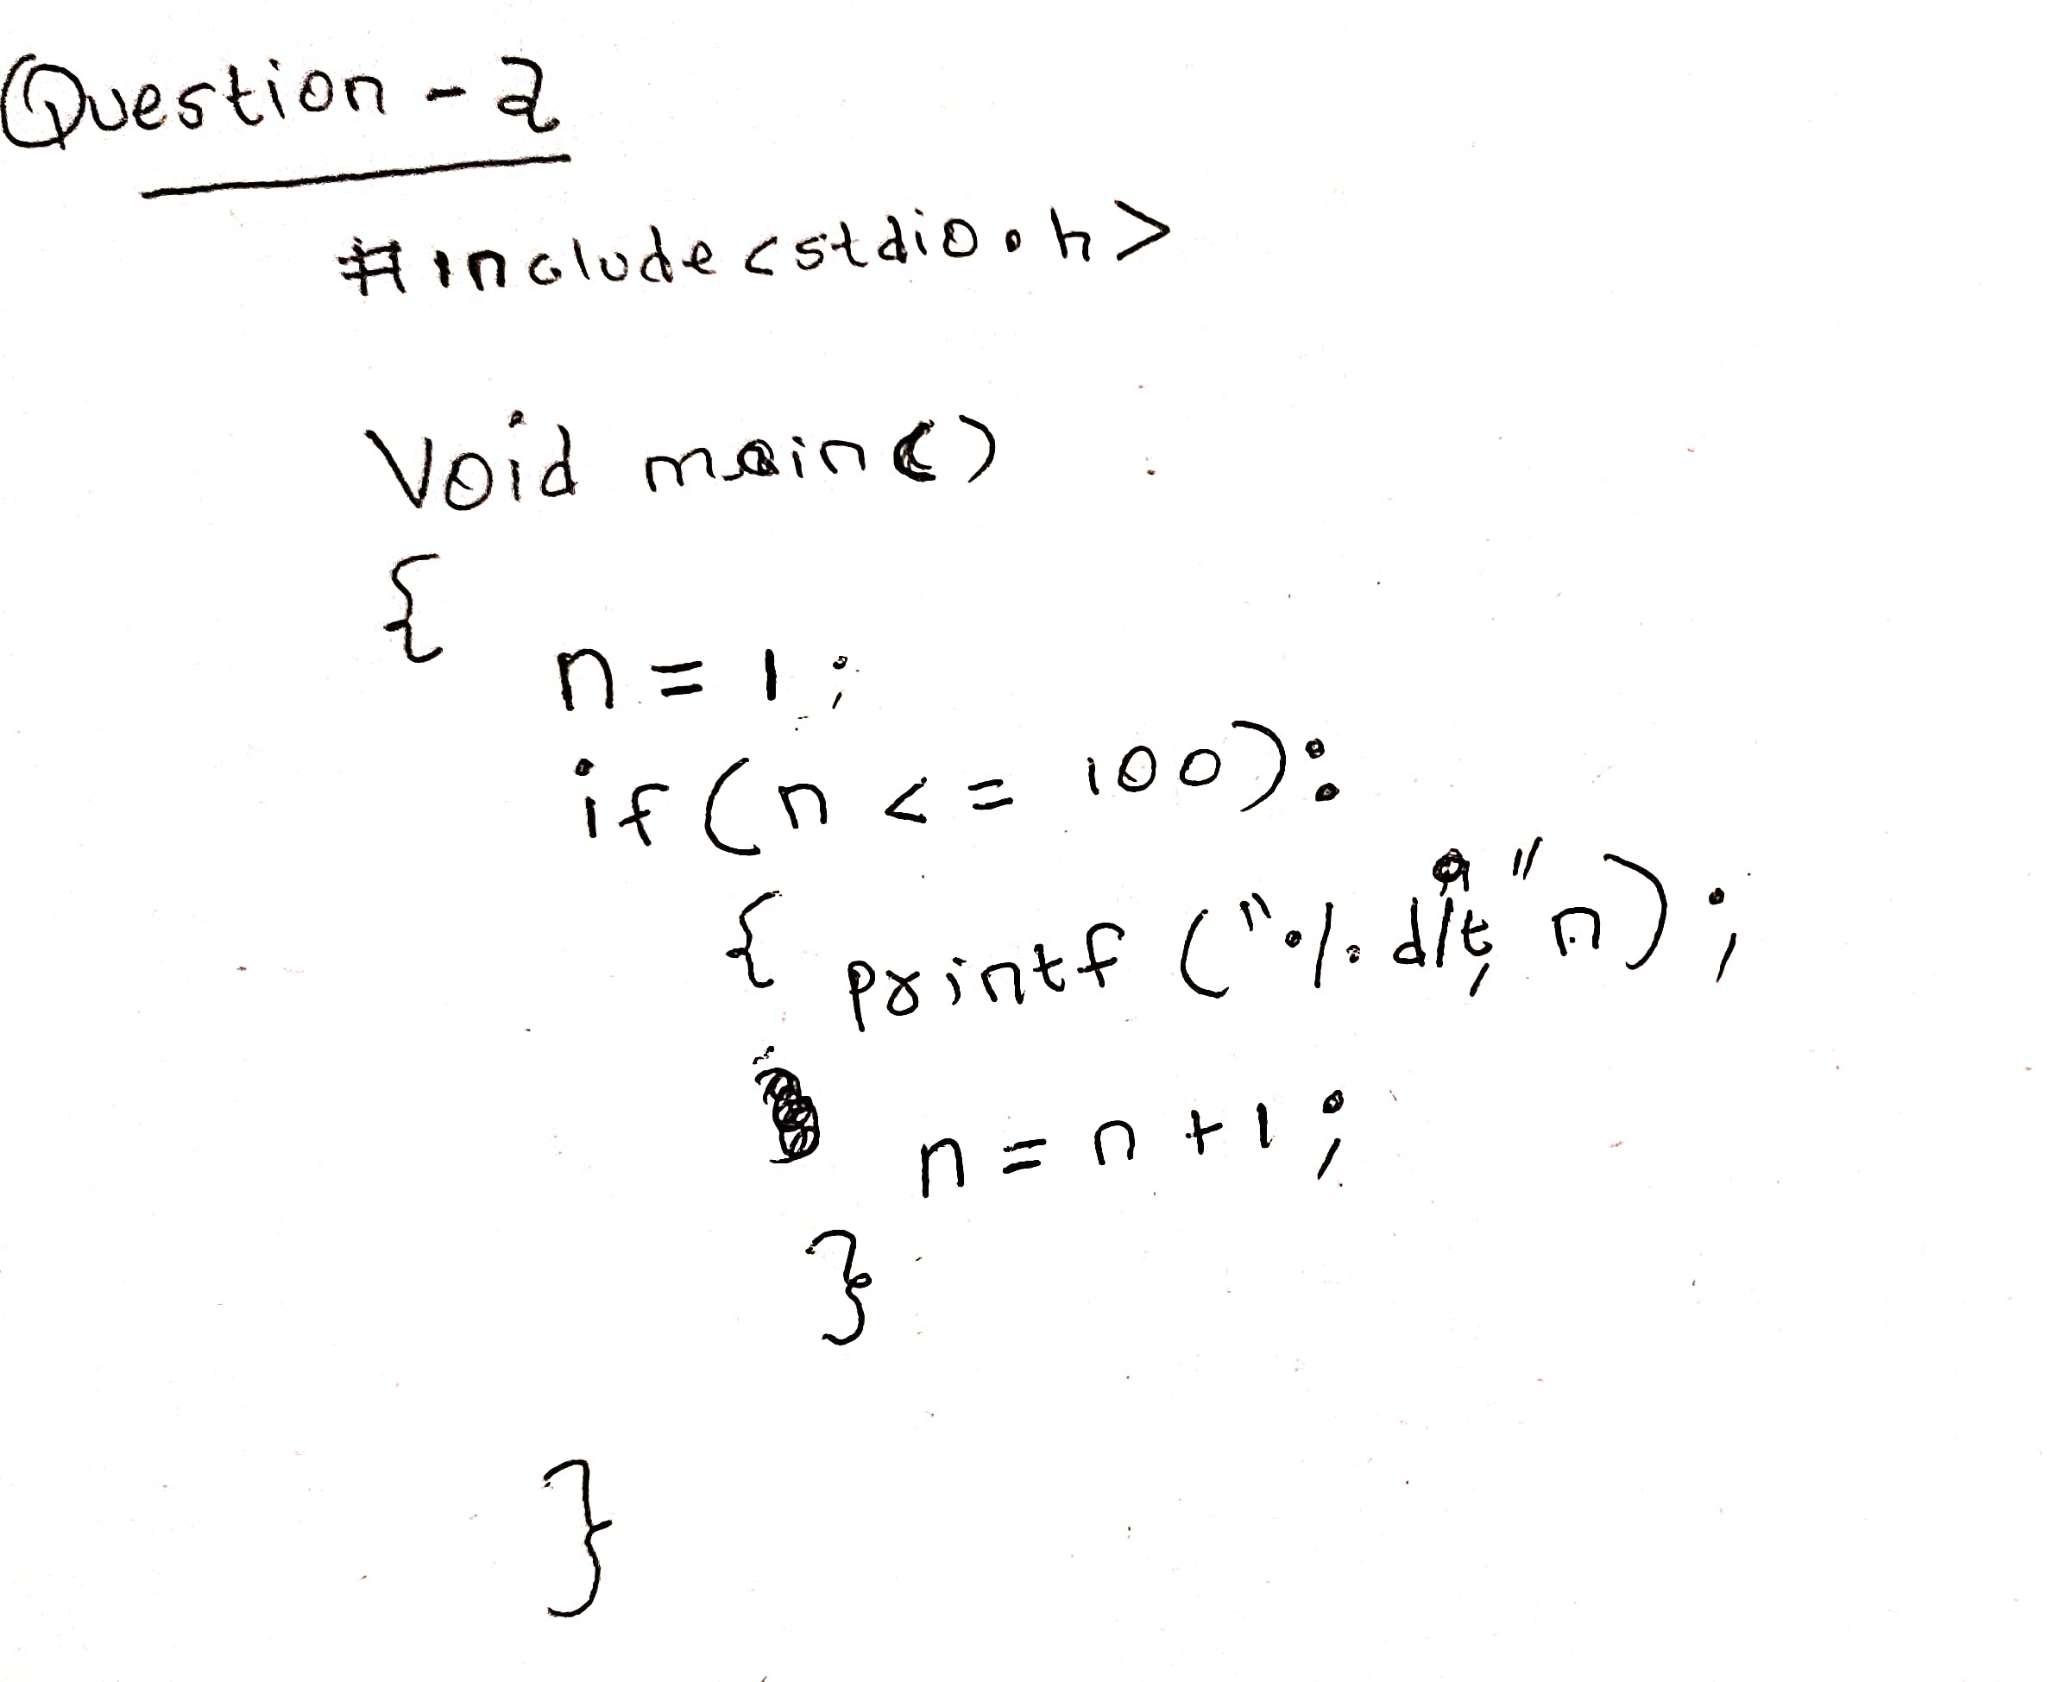 Question - 2
#include <stdio.h>
Void main()
{
n = 1;
if (n <= 100):
{ printf ("%d/t," n);
n = n + 1;
}
}